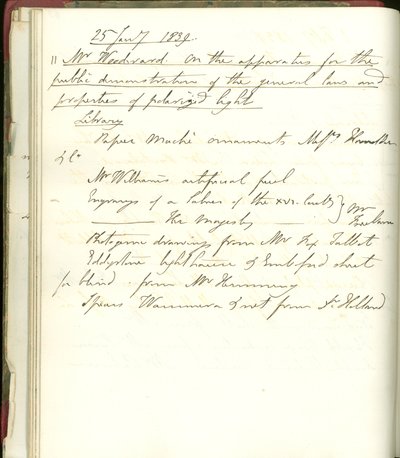 25 Jany 1839.
11 Mr Woodward. On the apparatus for the
public demonstration of the general laws and
properties of polarized light
Library
Papier Maché ornaments Messrs
& Co
Mr Williams artificial fuel
Engravgs of a Salver of the XVI. Centy } Mr
——— Her Majesty
Photogenic drawings from Mr Fox Talbot
Eddystone lighthouse & Embossed sheet
for blind. from Mr Hemming
Spears Wammera & net from St Helland